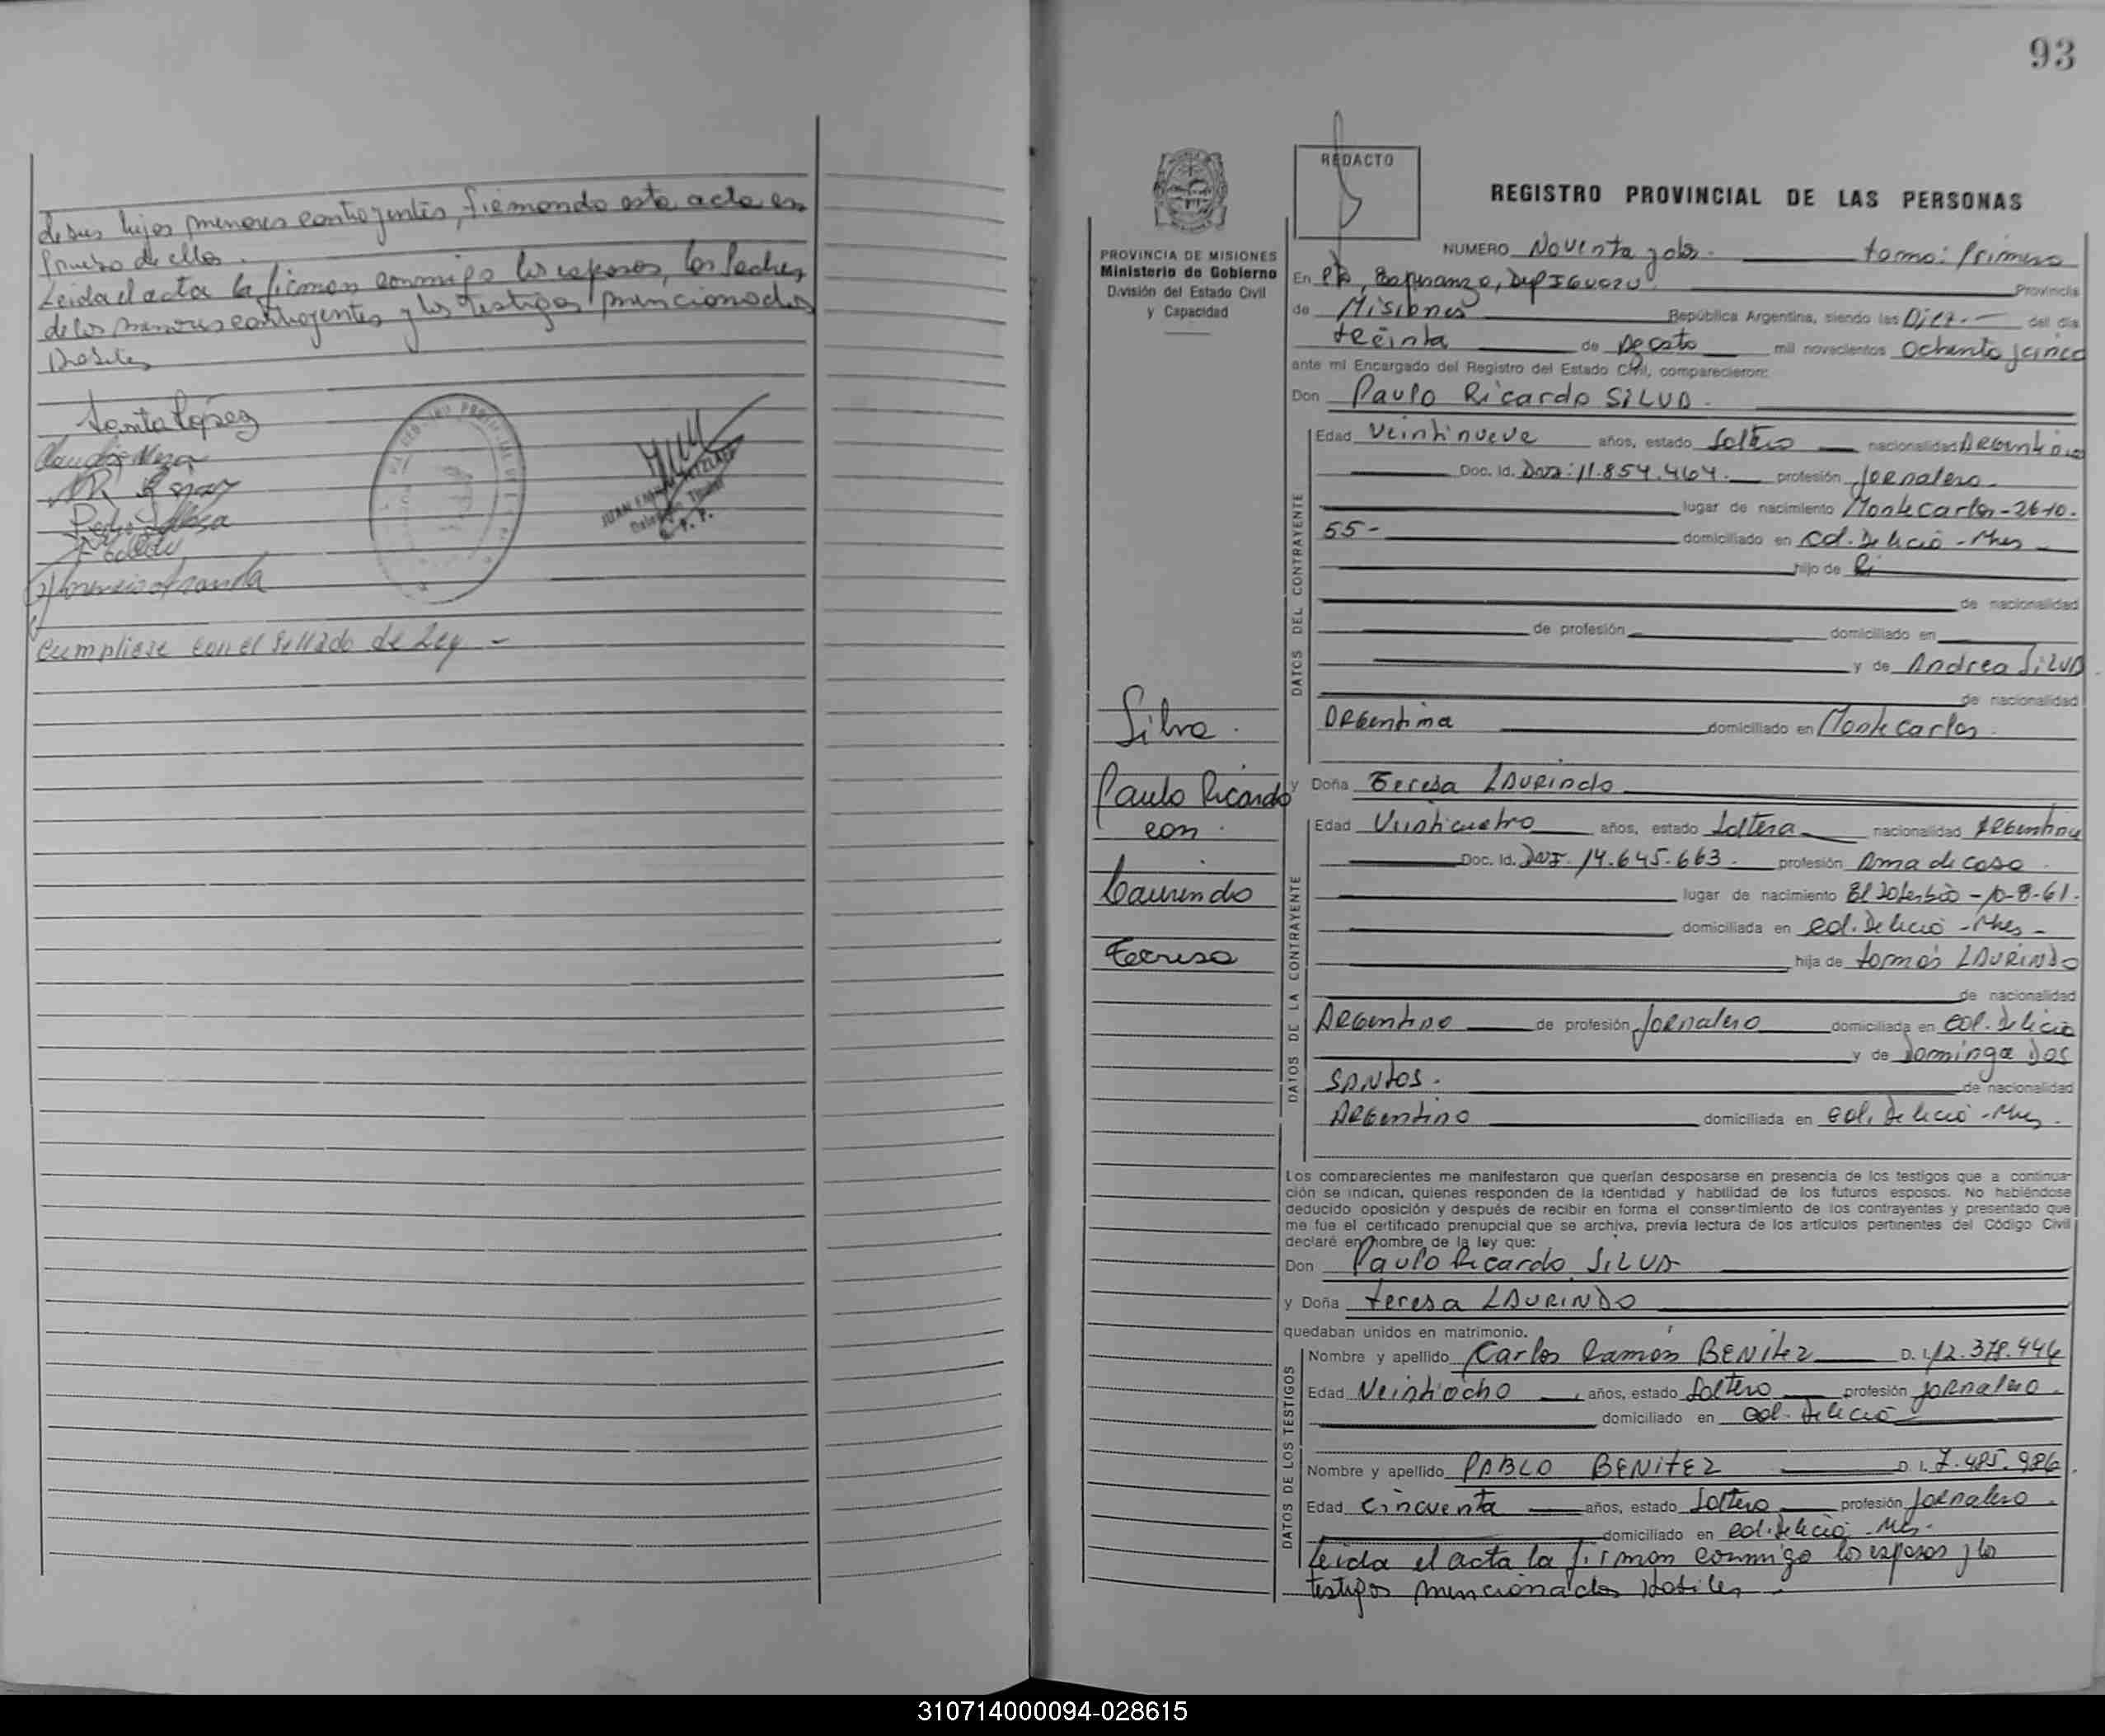 de sus hijos menores contrayentes, firmando esta acta en
prueba de ellos.
Leida el acta la firman conmigo los esposos, los Padres
de los menores contrayentes y los testigos mencionados
Habiles
Santa López
Cumpliese con el Sellado de Ley -
93
REDACTO
REGISTRO PROVINCIAL DE LAS PERSONAS
PROVINCIA DE MISIONES
Ministerio de Gobierno
División del Estado Civil
y Capacidad
NUMERO Noventa y dos.- tomo: Primero
En Pto, Esperanza, Dep IGUAZU Provincia
de Misiones República Argentina, siendo las Diez.- del día
treinta de Agosto mil novecientos Ochenta y cinco
ante mi Encargado del Registro del Estado Civil, comparecieron:
Don Paulo Ricardo SILVA.
DATOS DEL CONTRAYENTE
Edad Veintinueve años, estado Soltero nacionalidad ARGentino
Doc. Id. DNI: 11.854.464. profesión Jornalero
lugar de nacimiento Montecarlo-26-10.
55- domiciliado en Col. Delicia - Mnes
hijo de
de nacionalidad
de profesión domiciliado en
y de Andrea SILVA
de nacionalidad
ARGentina domiciliado en Montecarlo
y Doña Teresa LAURINDO
Silva
Paulo Ricardo
con
Laurindo
Teresa
DATOS DE LA CONTRAYENTE
Edad Veinticuatro años, estado Soltera nacionalidad ARGentina
Doc. Id. DNI. 14.645.663. profesión Ama de casa
lugar de nacimiento El Soberbio - 10-8-61.
domiciliada en Col. Delicia - Mnes -
hija de Tomás LAURINDO
de nacionalidad
ARGentino de profesión Jornalero domiciliada en Col. Delicia
y de Dominga DOS
SANTOS. de nacionalidad
ARGentino domiciliada en Col. Delicia - Mnes.
Los comparecientes me manifestaron que querían desposarse en presencia de los testigos que a continua-
ción se indican, quienes responden de la identidad y habilidad de los futuros esposos. No habiéndose
deducido oposición y después de recibir en forma el consentimiento de los contrayentes y presentado que
me fue el certificado prenupcial que se archiva, previa lectura de los artículos pertinentes del Código Civil
declaré en nombre de la ley que:
Don Paulo Ricardo SILVA
y Doña Teresa LAURINDO
quedaban unidos en matrimonio.
DATOS DE LOS TESTIGOS
Nombre y apellido Carlos Ramón BENITEZ D. I. 12.378.444
Edad Veintiocho años, estado Soltero profesión Jornalero.
domiciliado en Col. Delicia
Nombre y apellido PABLO BENITEZ D. I. 7.485.986.
Edad Cincuenta años, estado Soltero profesión Jornalero.
domiciliado en Col. Delicia - Mes.
Leida el acta la firman conmigo los esposos y los
testigos mencionados Habiles.
310714000094-028615